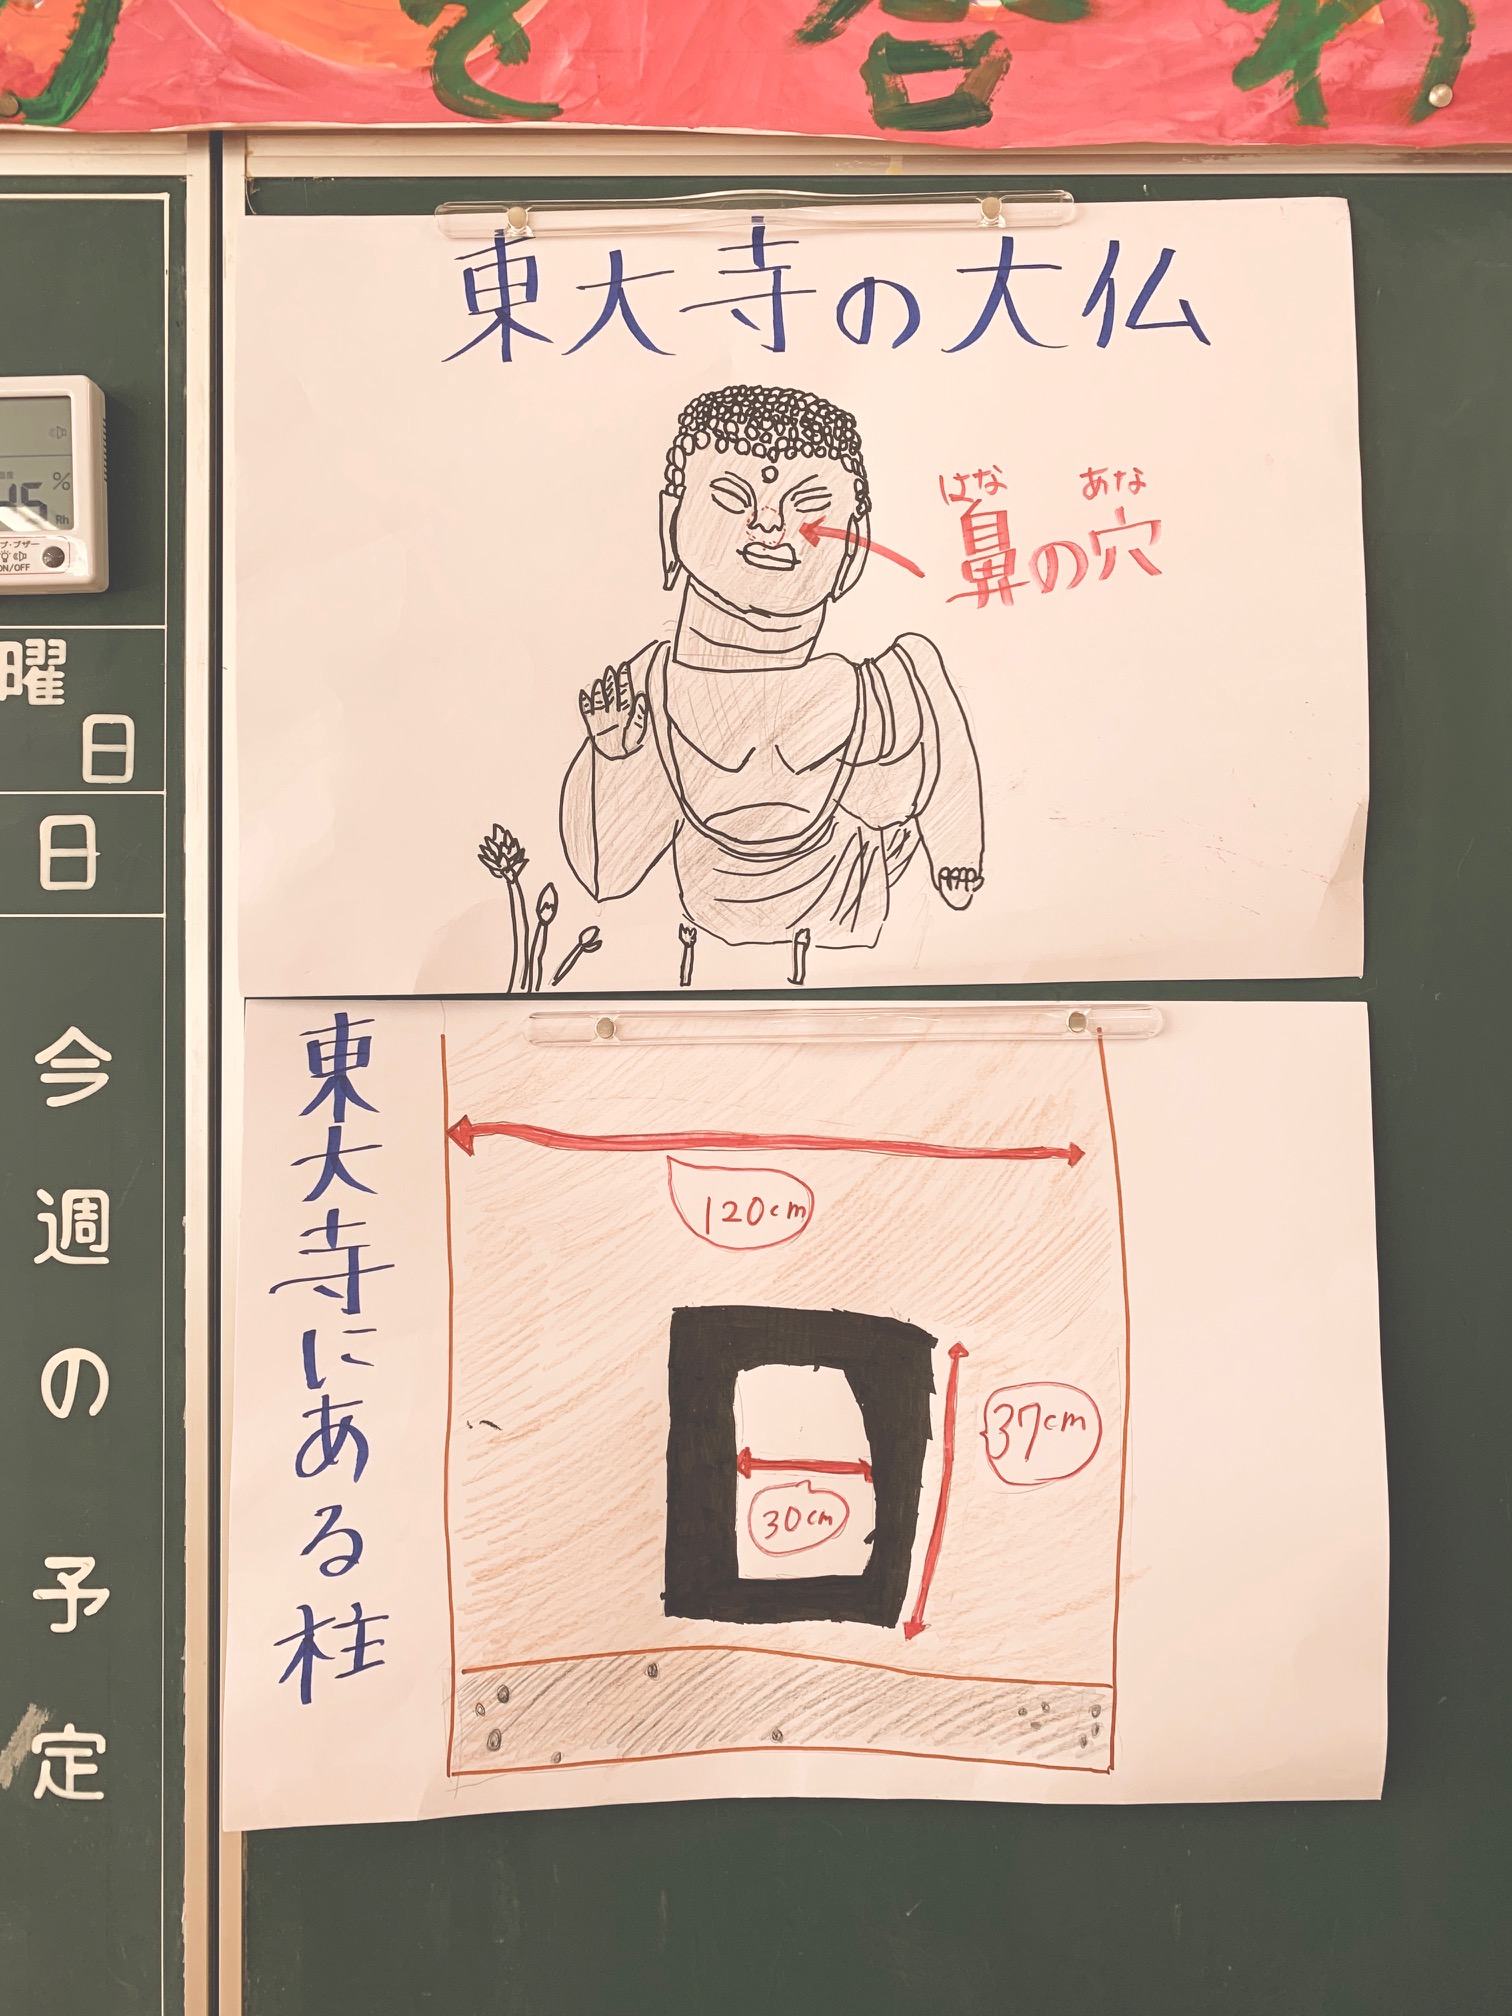 を合わ
東大寺の大仏
はな あな
鼻の穴
東大寺にある柱
120cm
37cm
30cm
曜日
日
今週の予定
45%
Rh
ON/OFF